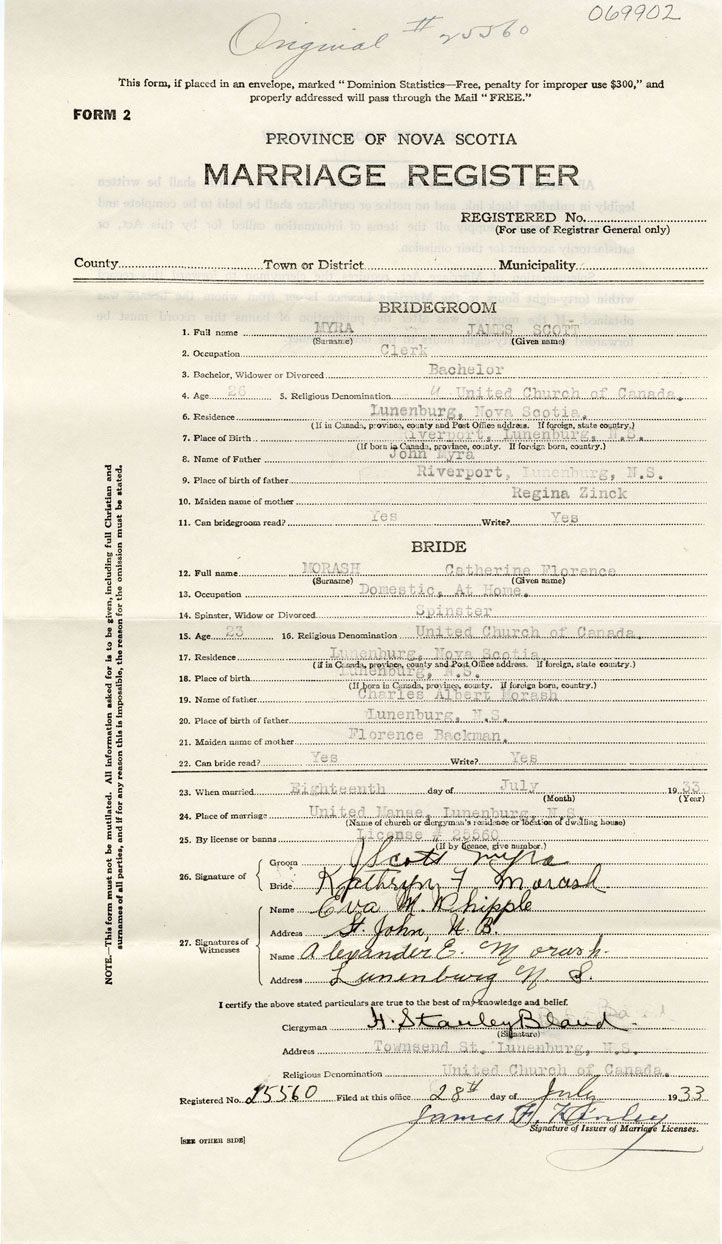 069902
Original # 25560
This form, if placed in an envelope, marked "Dominion Statistics—Free, penalty for improper use $300," and
properly addressed will pass through the Mail "FREE."
FORM 2
PROVINCE OF NOVA SCOTIA
MARRIAGE REGISTER
REGISTERED No.
(For use of Registrar General only)
County Town or District Municipality
BRIDEGROOM
1. Full name MYRA JAMES SCOTT
(Surname) (Given name)
2. Occupation Clerk
3. Bachelor, Widower or Divorced Bachelor
4. Age 26 5. Religious Denomination U United Church of Canada.
6. Residence Lunenburg, Nova Scotia.
(If in Canada, province, county and Post Office address. If foreign, state country.)
7. Place of Birth Riverport, Lunenburg, N.S.
(If born in Canada, province, county. If foreign born, country.)
8. Name of Father John Myra
9. Place of birth of father Riverport, Lunenburg, N.S.
10. Maiden name of mother Regina Zinck
11. Can bridegroom read? Yes Write? Yes
BRIDE
12. Full name MORASH Catherine Florence
(Surname) (Given name)
13. Occupation Domestic, At Home.
14. Spinster, Widow or Divorced Spinster
15. Age 23 16. Religious Denomination United Church of Canada.
17. Residence Lunenburg, Nova Scotia
(If in Canada, province, county and Post Office address. If foreign, state country.)
18. Place of birth Lunenburg, N.S.
(If born in Canada, province, county. If foreign born, country.)
19. Name of father Charles Albert Morash
20. Place of birth of father Lunenburg, N.S.
21. Maiden name of mother Florence Backman.
22. Can bride read? Yes Write? Yes
23. When married Eighteenth day of July 1933
(Month) (Year)
24. Place of marriage United Manse, Lunenburg, N.S.
(Name of church or clergyman's residence or location of dwelling house)
25. By license or banns License # 25560
(If by licence, give number.)
26. Signature of
Groom J Scott Myra
Bride Kathryn F Morash
27. Signatures of Witnesses
Name Eva M. Whipple
Address St. John, N. B.
Name Alexander E. Morash.
Address Lunenburg N. S.
I certify the above stated particulars are true to the best of my knowledge and belief.
Clergyman H. Stanley Bland.
(Signature)
Address Townsend St. Lunenburg, N.S.
Religious Denomination United Church of Canada.
Registered No. 25560 Filed at this office 28th day of July 1933
James F. Kinley
Signature of Issuer of Marriage Licenses.
[SEE OTHER SIDE]
NOTE.—This form must not be mutilated. All information asked for is to be given, including full Christian and
surnames of all parties, and if for any reason this is impossible, the reason for the omission must be stated.